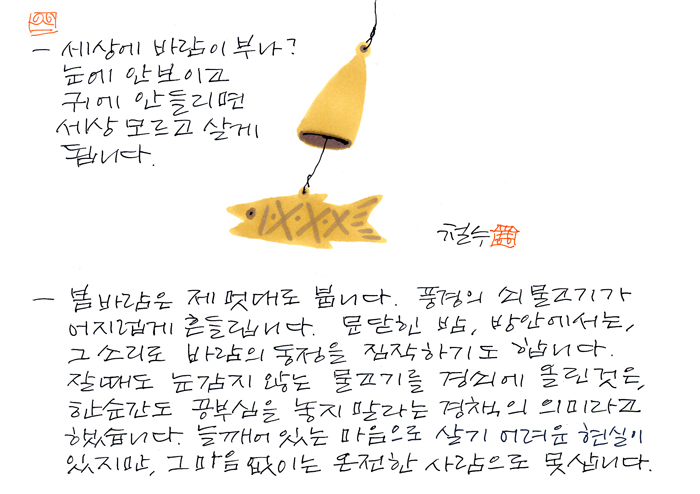 — 세상에 바람이 부나?
눈에 안보이고
귀에 안들리면
세상 모르고 살게
됩니다.
철수
— 봄바람은 제멋대로 붑니다. 풍경의 쇠물고기가
어지럽게 흔들립니다. 문닫힌 밤, 방안에서는,
그 소리로 바람의 동정을 짐작하기도 합니다.
잘때도 눈감지 않는 물고기를 경쇠에 올린것은,
한순간도 공부심을 놓지 말라는 경책의 의미라고
했습니다. 늘깨어 있는 마음으로 살기 어려운 현실이
있지만, 그마음 없이는 온전한 사람으로 못삽니다.